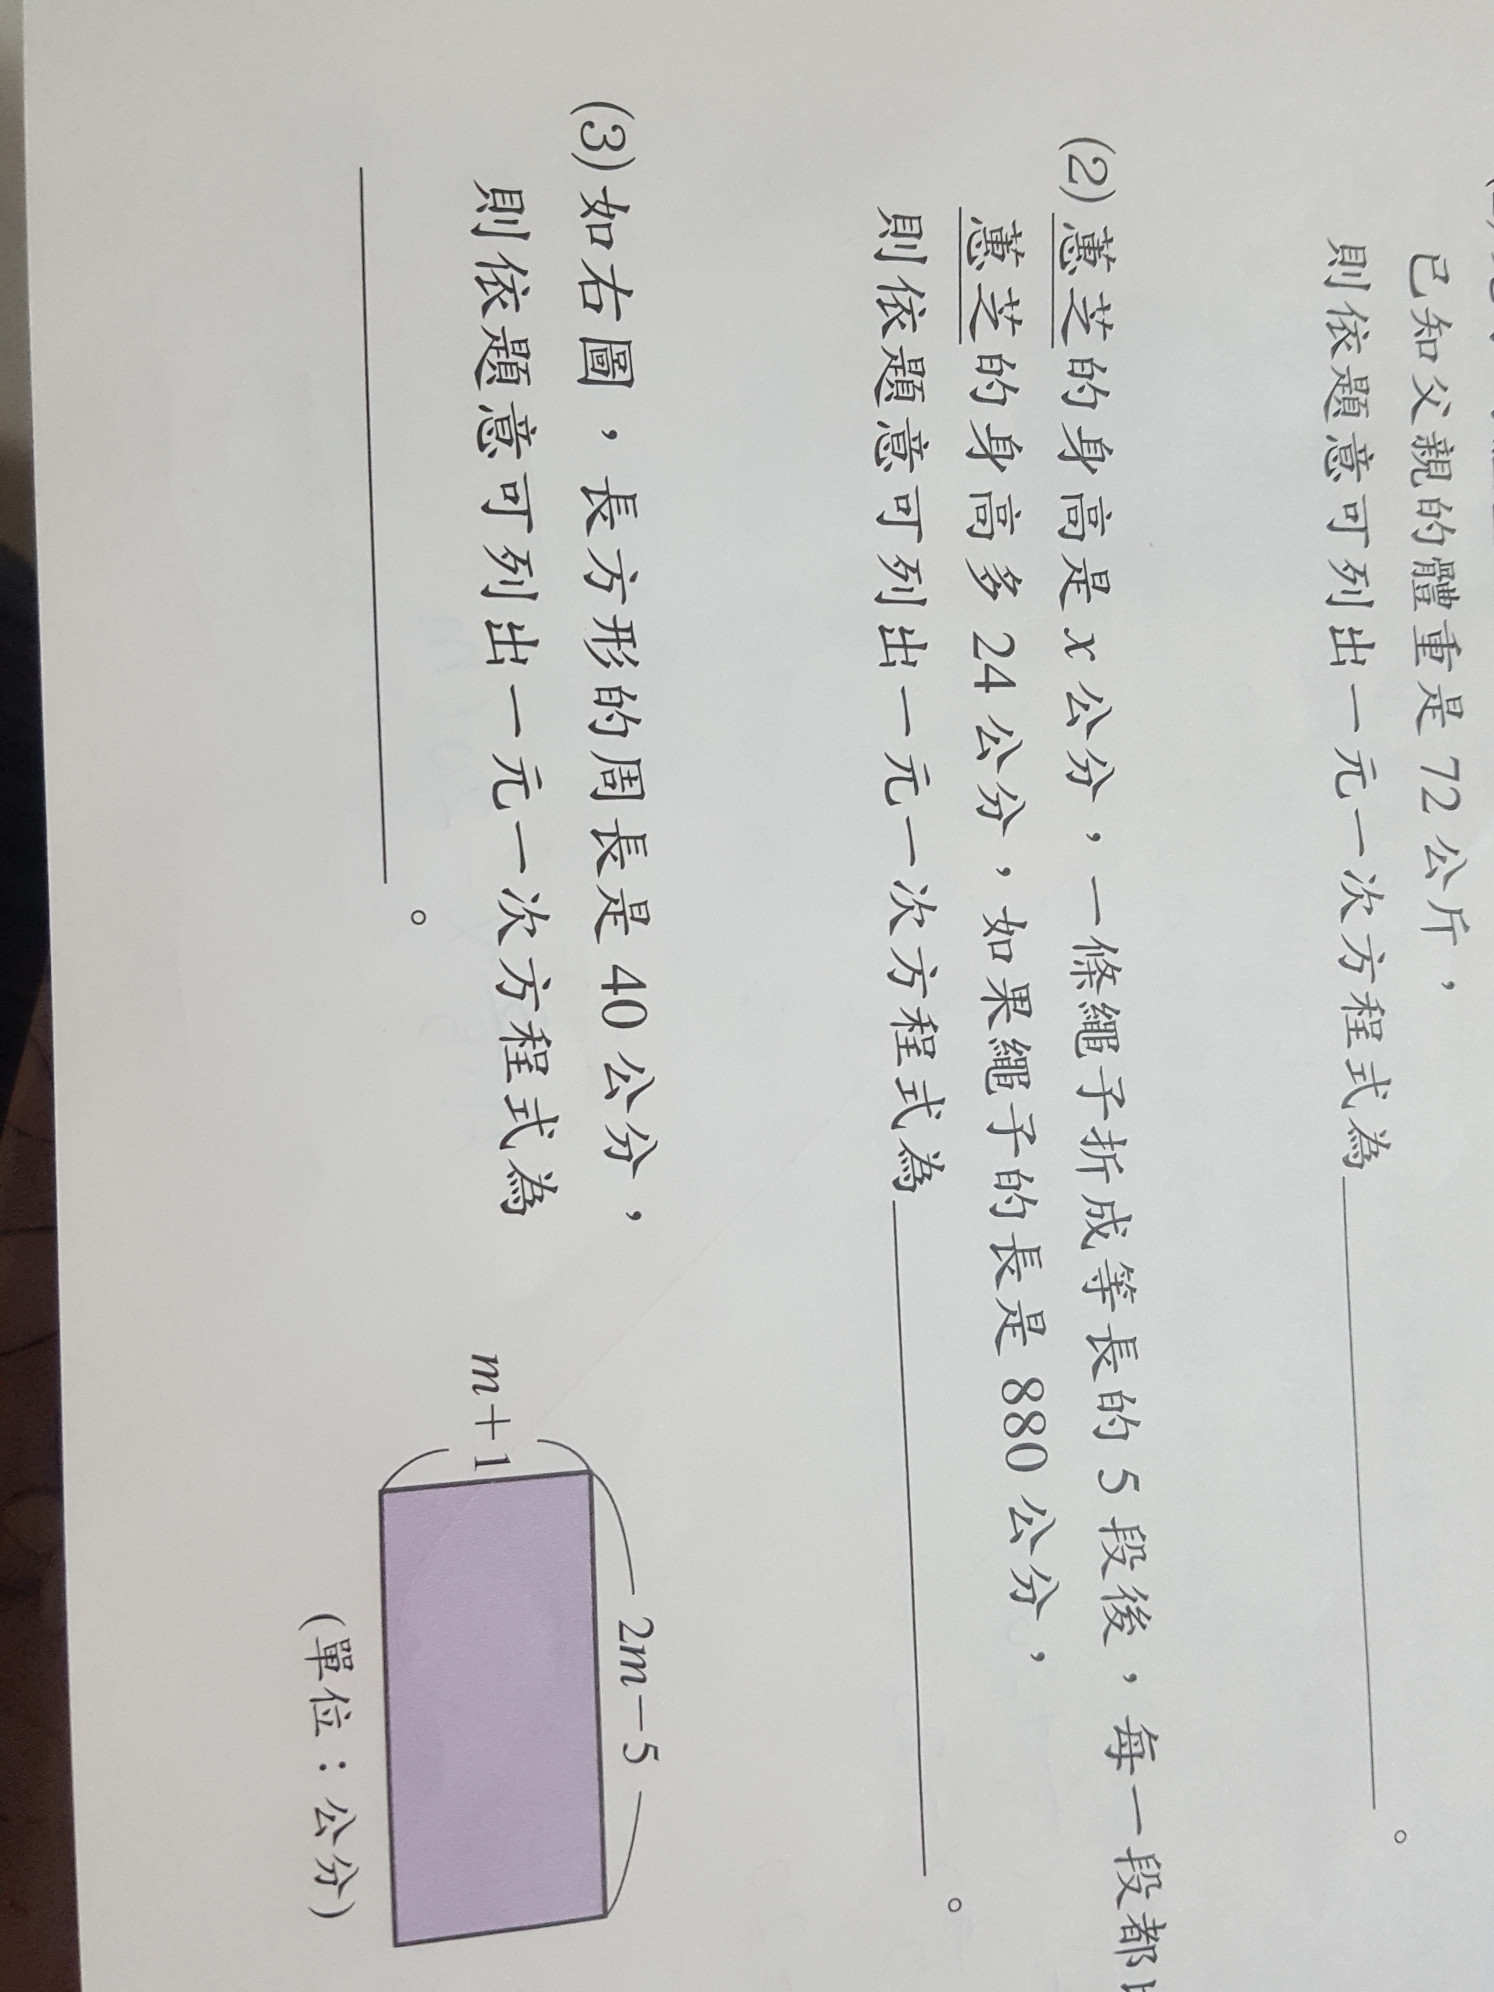 已知父親的體重是 72 公斤，
則依題意可列出一元一次方程式為 。
(2) 蕙芝的身高是 x 公分，一條繩子折成等長的 5 段後，每一段都
蕙芝的身高多 24 公分，如果繩子的長是 880 公分，
則依題意可列出一元一次方程式為 。
(3) 如右圖，長方形的周長是 40 公分，
則依題意可列出一元一次方程式為
。
2m－5
m＋1
(單位：公分)